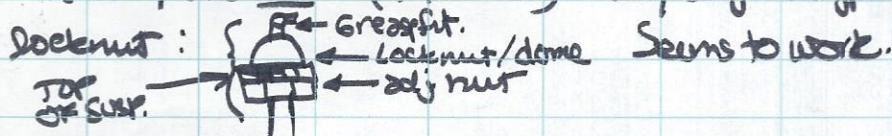 Locknut :
Greasefit.
Locknut/dome
adj nut
TOP
OF SUSP.
Seems to work.